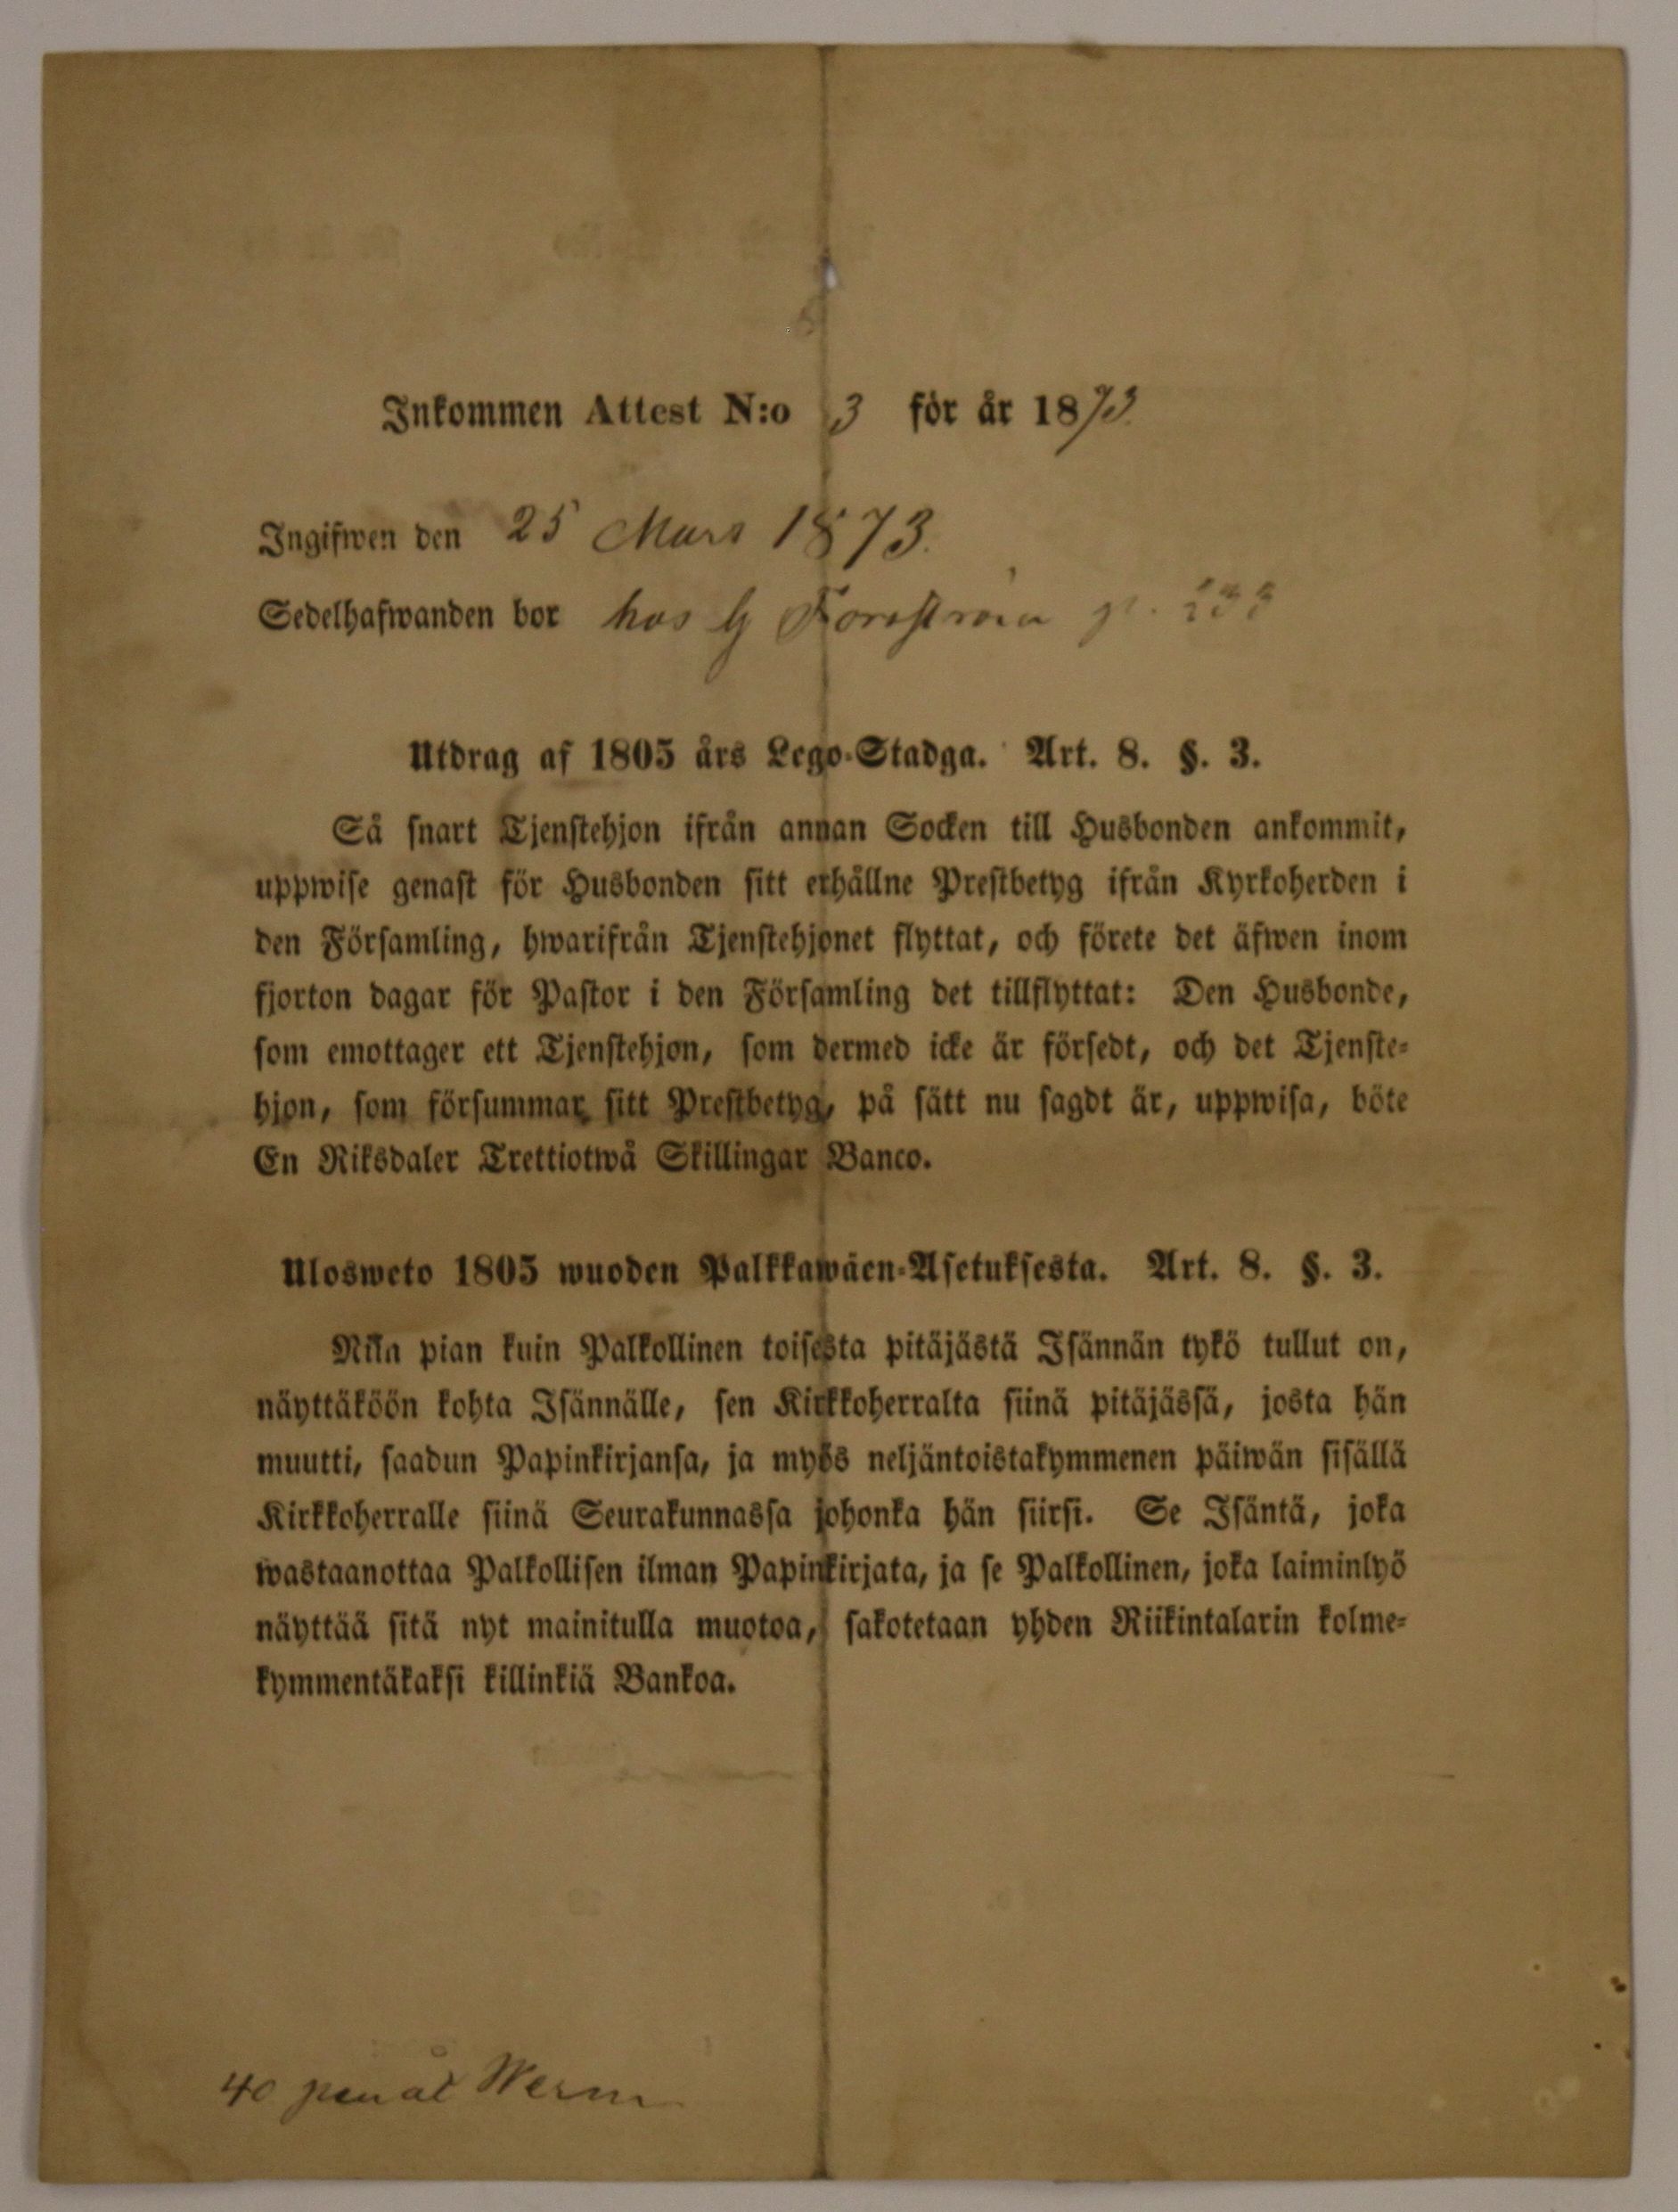 Inkommen Attest N:o 3 för år 1873.
Ingifwen den 25 Mars 1873.
Sedelhafwanden bor hos G Forsström
Utdrag af 1805 års Lego-Stadga. Art. 8. §. 3.
Så snart Tjenstehjon ifrån annan Socken till Husbonden ankommit,
uppwise genast för Husbonden sitt erhållne Prestbetyg ifrån Kyrkoherden i
den Församling, hwarifrån Tjenstehjonet flyttat, och förete det äfwen inom
fjorton dagar för Pastor i den Församling det tillflyttat: Den Husbonde,
som emottager ett Tjenstehjon, som dermed icke är försedt, och det Tjenste-
hjon, som försummar sitt Prestbetyg, på sätt nu sagdt är, uppwisa, böte
En Riksdaler Trettiotwå Skillingar Banco.
Ulosweto 1805 wuoden Palkkawäen-Asetuksesta. Art. 8. §. 3.
Niin pian kuin Palkollinen toisesta pitäjästä Isännän tykö tullut on,
näyttäköön kohta Isännälle, sen Kirkkoherralta siinä pitäjässä, josta hän
muutti, saadun Papinkirjansa, ja myös neljäntoistakymmenen päiwän sisällä
Kirkkoherralle siinä Seurakunnassa johonka hän siirsi. Se Isäntä, joka
wastaanottaa Palkollisen ilman Papinkirjata, ja se Palkollinen, joka laiminlyö
näyttää sitä nyt mainitulla muotoa, sakotetaan yhden Riikintalarin kolme-
kymmentäkaksi killinkiä Bankoa.
40 åt